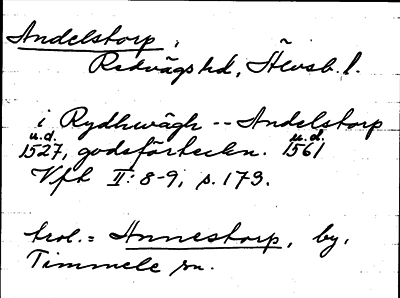 Andelstorp,
Redvägs hd, Älvsb. l.
i Rydhwägh -- Andelstorp
u.d. u.d.
1527, godsförteckn. 1561
Vfh II: 8-9, s. 173.
trol. = Annestorp, by,
Timmele sn.